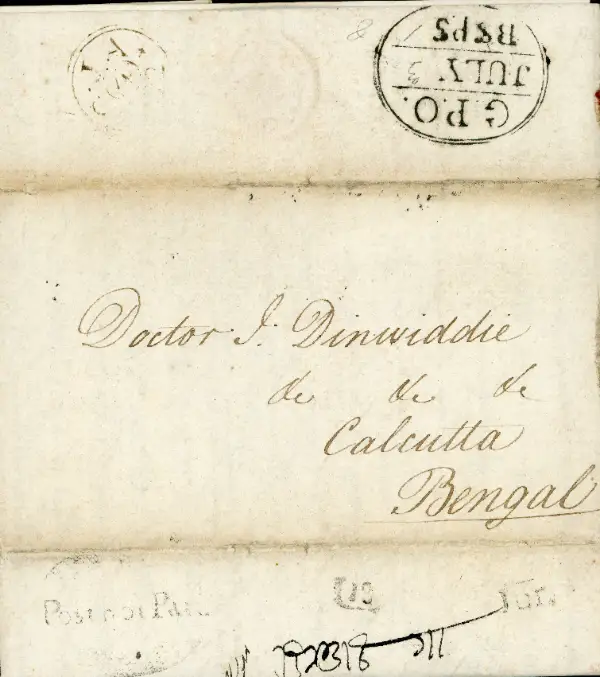 G.P.O.
JULY 3
B&PS
Doctor J. Dinwiddie
&c &c &c
Calcutta
Bengal
Post not Paid